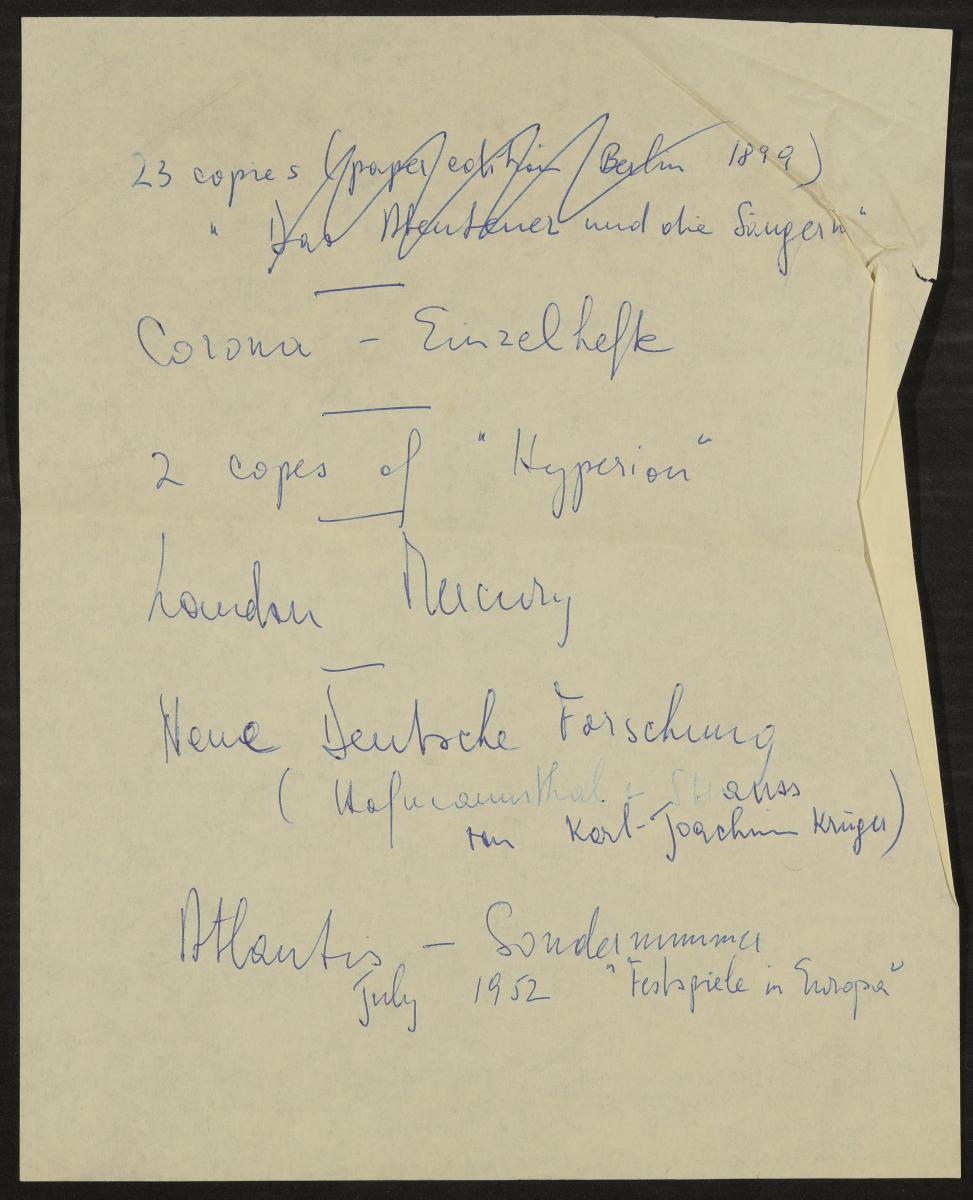 23 copies (paper edition Berlin 1899)
" Das Abenteuer und die Sängerin"
Corona - Einzelhefte
2 copes of "Hyperion"
London Mercury
Neue Deutsche Forschung
( Hofmannsthal + Strauss
von Karl-Joachim Krüger)
Atlantis - Sondernummer
July 1952 "Festspiele in Europa"